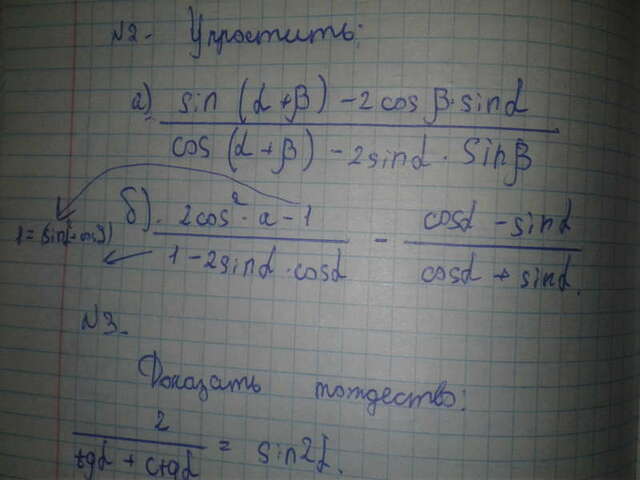 №2. Упростить:
а) sin (α+β) - 2 cos β · sin α
cos (α+β) - 2 sin α · sin β
б) 2cos² · a - 1
1 - 2 sin α · cos α
- cos α - sin α
cos α + sin α.
№3.
Доказать тождество:
2
tg α + ctg α
= sin 2α.